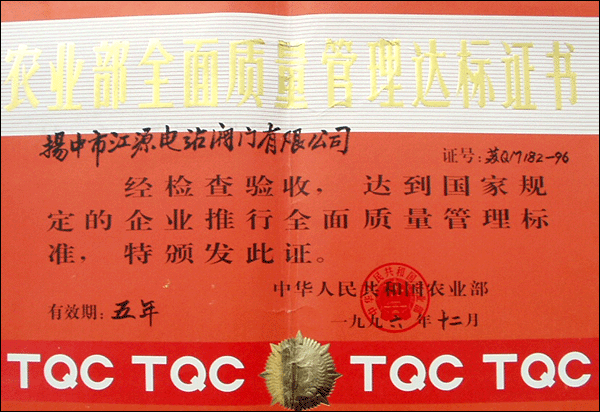 农业部全面质量管理达标证书
揚中市江源电站阀门有限公司
证号: 苏QM182-96
经检查验收，达到国家规
定的企业推行全面质量管理标
准，特颁发此证。
中华人民共和国农业部
有效期: 五年
一九九六年十二月
TQC TQC TQC TQC